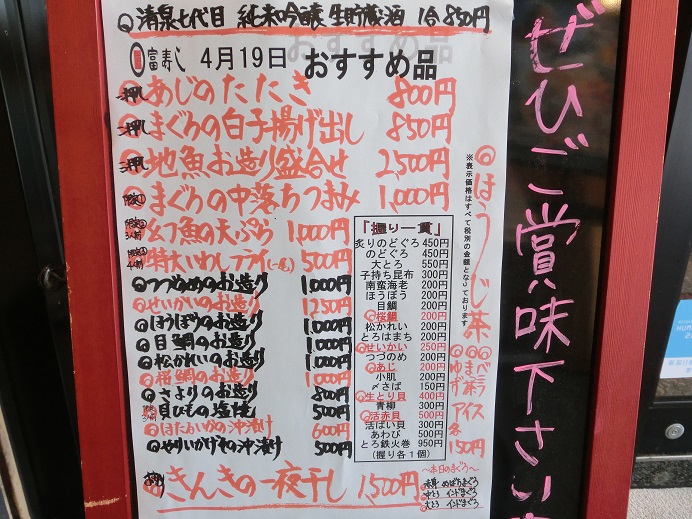 清泉七代目 純米吟醸 生貯蔵酒 1合 850円
富寿し 4月19日 おすすめ品
押し あじのたたき 800円
押し まぐろの白子揚げ出し 850円
押し 地魚お造り盛合せ 2,500円
まぐろの中落ちつまみ 1,000円
幻魚の天ぷら 1,000円
特大いわしフライ(一尾) 500円
つづめのお造り 1,000円
せいかいのお造り 1,250円
ほうぼうのお造り 1,000円
目鯛のお造り 1,000円
松かれいのお造り 1,000円
桜鯛のお造り 1,000円
さよりのお造り 800円
貝ひもの塩焼 500円
ほたるいかの沖漬け 600円
やりいかげその沖漬け 500円
きんきの一夜干し 1,500円
「握り一貫」
炙りのどぐろ 450円
のどぐろ 450円
大とろ 550円
子持ち昆布 300円
南蛮海老 200円
ほうぼう 200円
目鯛 200円
桜鯛 200円
松かれい 200円
とろはまち 200円
せいかい 250円
つづのめ 200円
あじ 200円
小肌 200円
〆さば 150円
生とり貝 400円
青柳 300円
活赤貝 500円
活ばい貝 300円
あわび 500円
とろ鉄火巻 950円
(握り各1個)
※表示価格はすべて税別の金額となっております
ほうじ茶
ゆず
抹茶
バニラ
アイス
各150円
~本日のまぐろ~
味身 めばちまぐろ
中とろ インドまぐろ
大とろ インドまぐろ
ぜひご賞味下さい